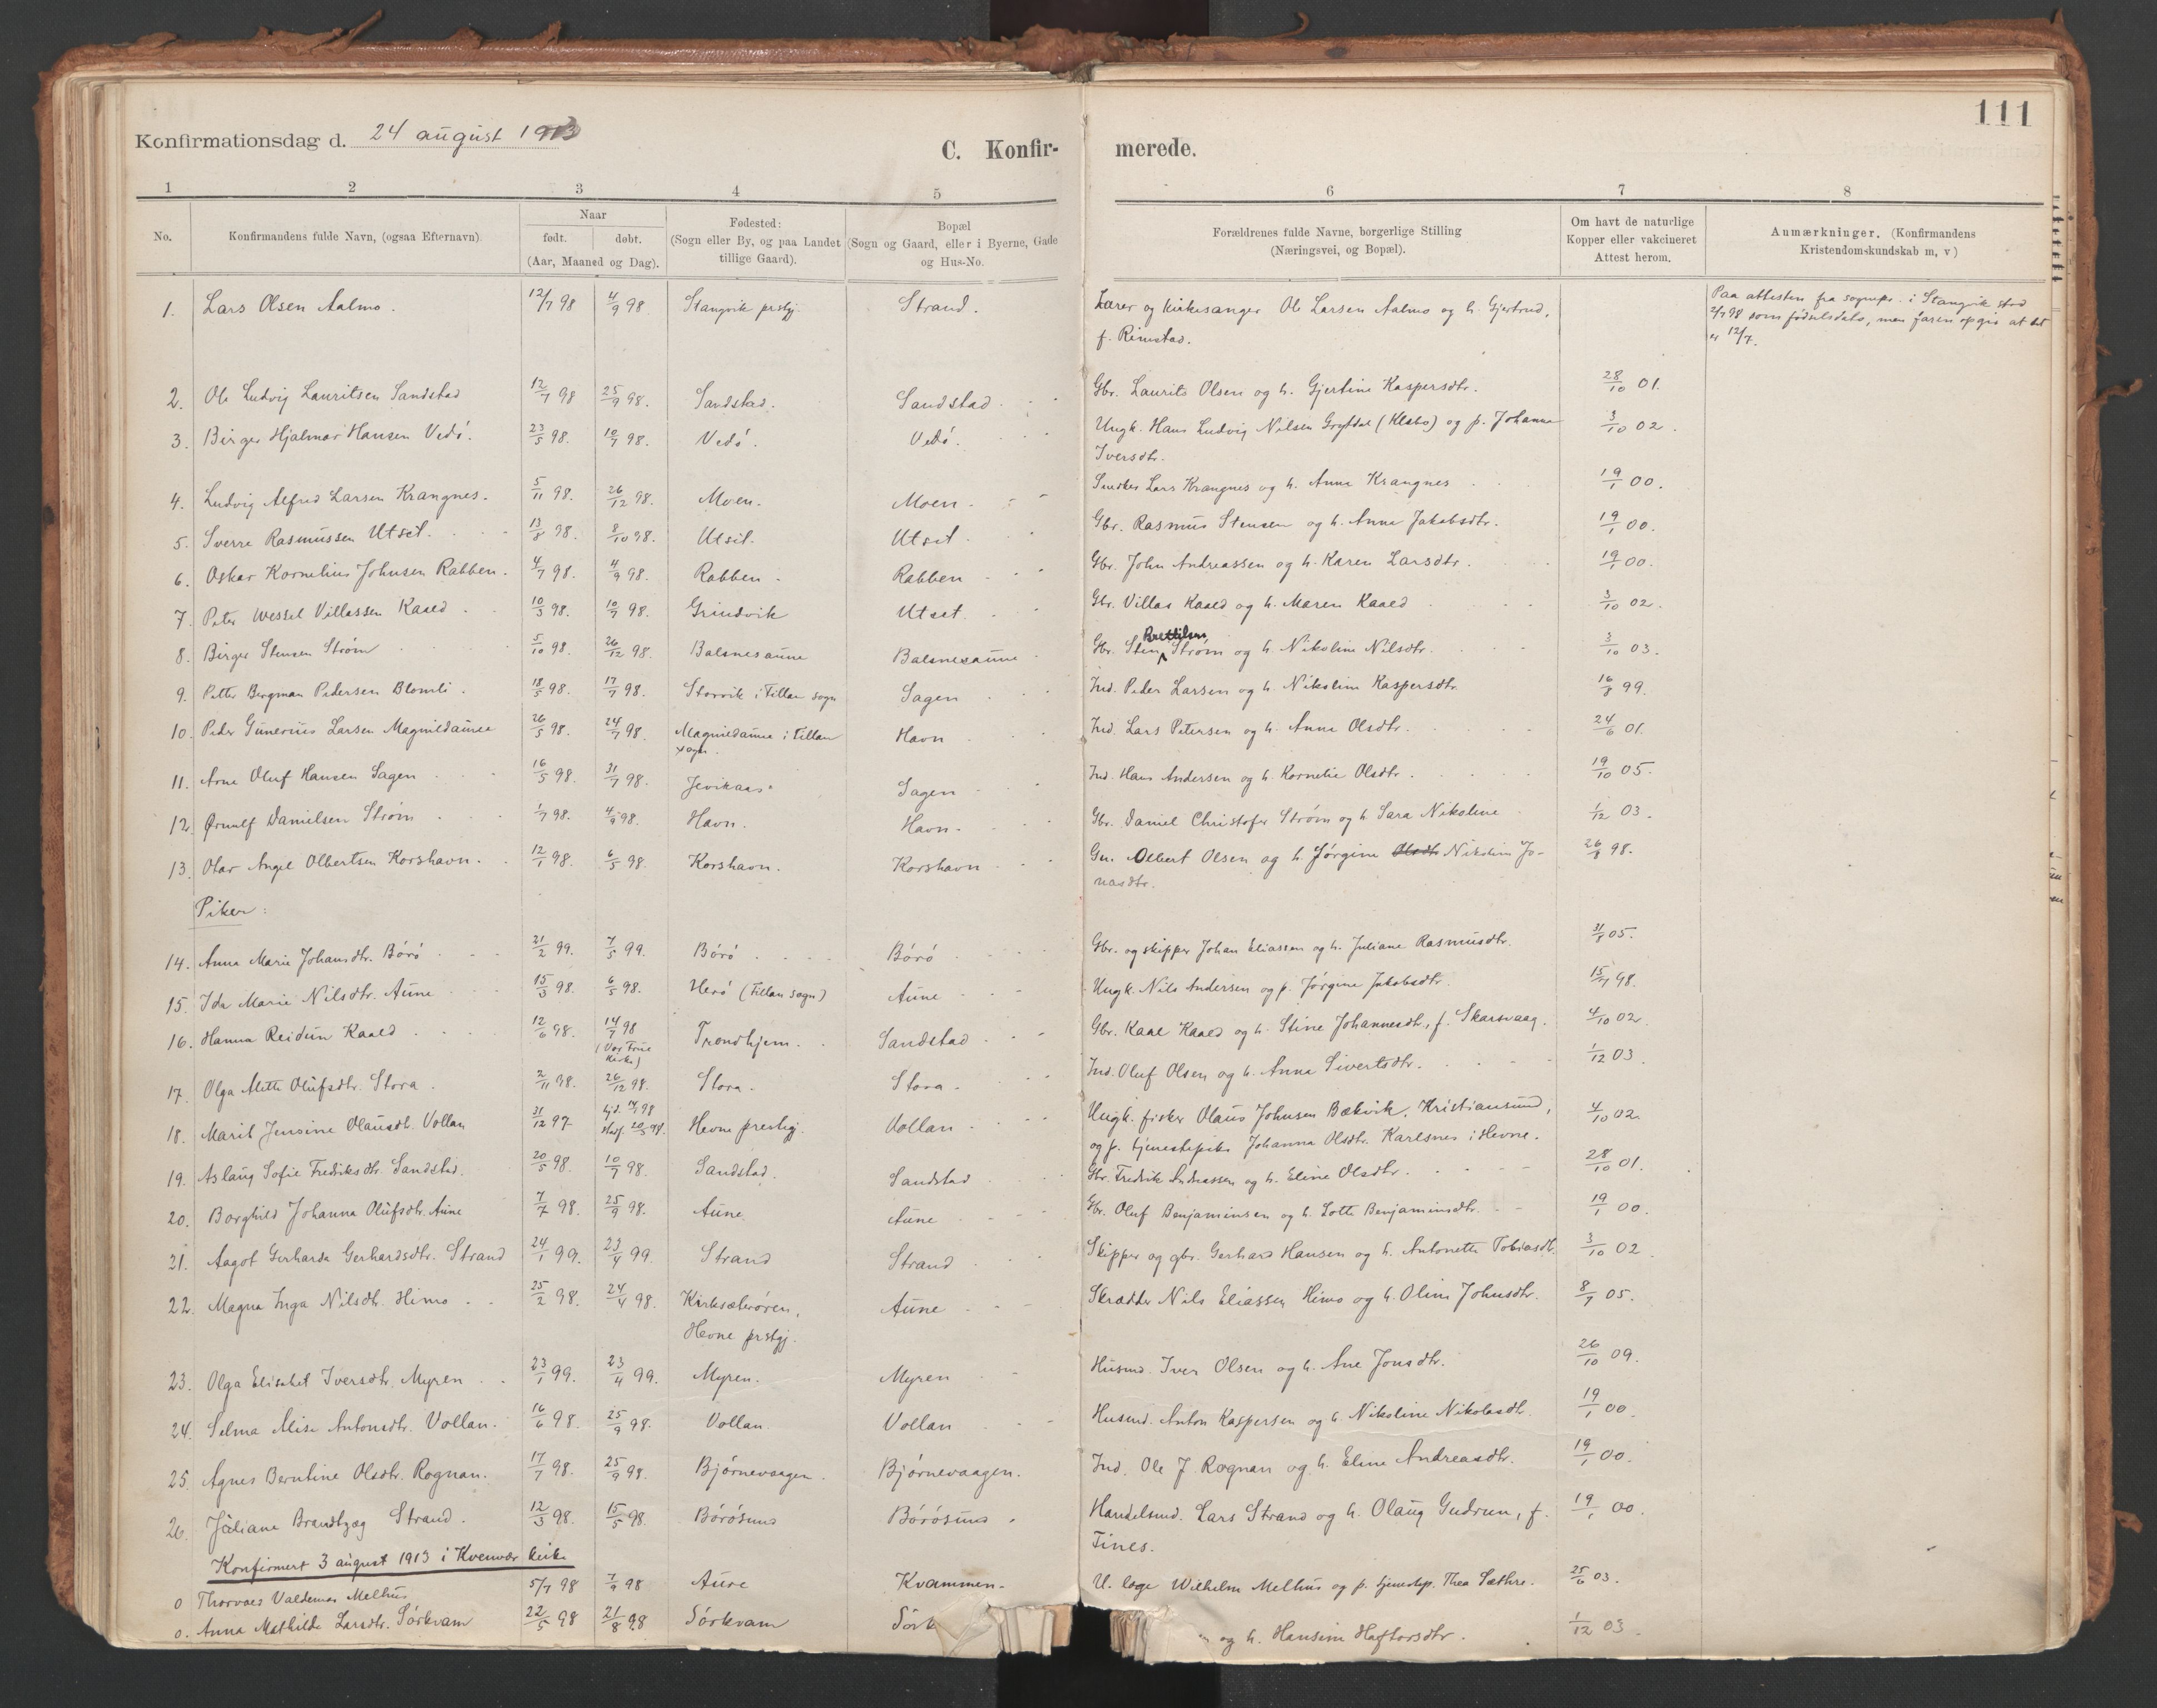 111
Konfirmationsdag d. 24 august 1913
C. Konfir- merede.
1 2 3 4 5 6 7 8
No. Konfirmandens fulde Navn, (ogsaa Efternavn). Naar født. døbt. (Aar, Maaned og Dag). Fødested: (Sogn eller By, og paa Landet tillige Gaard). Bopæl (Sogn og Gaard, eller i Byerne, Gade og Hus-No. Forældrenes fulde Navne, borgerlige Stilling (Næringsvei, og Bopæl). Om havt de naturlige Kopper eller vakcineret Attest herom. Anmærkninger. (Konfirmandens Kristendomskundskab m, v)
1. Lars Olsen Aalmo. 12/7 98 4/9 98 Stangvik prstgj. Strand. Lærer og kirkesanger Ole Larsen Aalmo og h. Gjertrud, f. Rimstad. Paa attesten fra sognepr. i Stangvik stod 2/7 98 som fødselsdato, men faren opgir at det er 12/7.
2. Ole Ludvig Lauritsen Sandstad 12/7 98 25/9 98. Sandstad. Sandstad Gbr. Laurits Olsen og h. Gjertine Kaspersdtr. 28/10 01.
3. Birger Hjalmar Hansen Vedø. 23/5 98. 10/7 98. Vedø. Vedø. Ungk. Hans Ludvig Nilsen Grytdal (Klæbo) og p. Johanna Iversdtr. 3/10 02.
4. Ludvig Alfred Larsen Krangnes. 5/11 98. 26/12 98. Moen. Moen. Snedker Lars Krangnes og h. Anna Krangnes 19/1 00.
5. Sverre Rasmussen Utset. 13/8 98. 8/10 98. Utset. Utset Gbr. Rasmus Stensen og h. Anna Jakobsdtr. 19/1 00.
6. Oskar Kornelius Johnsen Rabben. 4/7 98. 4/9 98. Rabben. Rabben Gbr. John Andreassen og h. Karen Larsdtr. 19/1 00.
7. Peter Wessel Villassen Kaald. 10/3 98. 10/7 98. Grindvik Utset. Gbr. Villas Kaald og h. Maren Kaald 3/10 02.
8. Birger Stensen Strøm 5/10 98. 26/12 98. Balsnesaune Balsnesaune Gbr. Sten Pretilsen Strøm og h. Nikoline Nilsdtr. 3/10 03.
9. Petter Bergman Pedersen Blomli. 18/5 98. 17/7 98. Storvik i Fillan sogn Sagen Ind. Peder Larsen og h. Nikoline Kaspersdtr. 16/8 99.
10. Peder Gunerius Larsen Magnildaunee 26/5 98. 24/7 98. Magnildaune i Fillan sogn. Havn Ind. Lars Petersen og h. Anna Olsdtr. 24/6 01.
11. Arne Oluf Hansen Sagen 16/5 98. 31/7 98. Jevikaas Sagen Ind. Hans Andersen og h. Kornelie Olsdtr. 19/10 05.
12. Ørnulf Danielsen Strøm 1/7 98. 4/9 98. Havn. Havn. Gbr. Daniel Christofer Strøm og h. Sara Nikoline 1/12 03.
13. Otar Angel Olbertsen Korshavn. 12/1 98. 6/5 98. Korshavn. Korshavn Gm. Olbert Olsen og h. Jørgine Olsdtr Nikoline Jonasdtr. 26/8 98.
Piker:
14. Anna Marie Johansdtr. Børø 21/2 99. 7/5 99. Børø Børø Gbr. og skipper Johan Eliassen og h. Juliane Rasmusdtr. 31/8 05.
15. Ida Marie Nilsdtr. Aune 15/3 98. 6/5 98. Herø (Fillan sogn) Aune Ungk. Nils Andersen og p. Jørgine Jakobsdtr. 15/7 98.
16. Hanna Reidun Kaald 12/6 98. 14/7 98 (Vor Frue kirke) Trondhjem. Sandstad Gbr. Kaal Kaald og h. Stine Johannesdtr., f. Skarsvaag. 4/10 02.
17. Olga Mette Olufsdtr. Stora. 2/11 98. 26/12 98. Stora. Stora. Ind. Oluf Olsen og h. Anna Sivertsdtr. 1/12 03.
18. Marit Jensine Olausdt. Vollan 31/12 97 hjd. 14/1 98 stadf. 20/3 98. Hevne prestegj. Vollan Ungk. fisker Olaus Johnsen Bækvik, Kristiansund, og p. tjenestepike Johanna Olsdtr. Karlsnes i Hevne. 4/10 02.
19. Aslaug Sofie Fredriksdtr. Sandstad. 20/5 98. 10/7 98. Sandstad. Sandstad Gbr. Fredrik Andreassen og h. Eline Olsdtr. 28/10 01.
20. Borghild Johanna Olufsdtr. Aune 7/7 98. 25/9 98. Aune Aune Gbr. Oluf Benjaminsen og h. Lotte Benjaminsdtr. 19/1 00.
21. Aagot Gerharda Gerhardsdtr. Strand 24/1 99. 23/4 99. Strand Strand Skipper og gbr. Gerhard Hansen og h. Antonette Tobiasdt. 3/10 02.
22. Magna Inga Nilsdtr. Himo 25/2 98. 24/4 98. Kirksæterøren, Hevne prstgj. Aune Skrædder Nils Eliassen Himo og h. Oline Johnsdtr. 8/7 05.
23. Olga Elisabet Iversdtr. Myren 23/1 99. 23/4 99. Myren. Myren Husmd. Iver Olsen og h. Ane Jonsdtr. 26/10 09.
24. Selma Alise Antonsdtr. Vollan. 16/6 98. 25/9 98. Vollan. Vollan Husmd. Anton Kaspersen og h. Nikoline Nikolasdtr. 19/1 00.
25. Agnes Berntine Olsdtr. Rognan. 17/7 98. 25/9 98. Bjørnevaagen. Bjørnevaagen. Ind. Ole J. Rognan og h. Eline Andreasdtr. 19/1 00.
26. Juliane Brandtzæg Strand. 12/3 98. 15/5 98. Børøsund Børøsund. Handelsmd. Lars Strand og h. Olaug Gudrun, f. Fines. 19/1 00.
Konfirmert 3 august 1913 i Kvenvær kirke
0 Thorvald Valdemar Melhus 5/7 98 7/9 98 Aure Kvammen. U. læge Wilhelm Melhus og p. tjenestep. Thea Sæthre. 25/6 03.
0. Anna Mathilde Larsdtr. Sørkvam 22/5 98 21/8 98 Sørkvam Sørk og h. Hansine Haftorsdtr. 1/12 03.